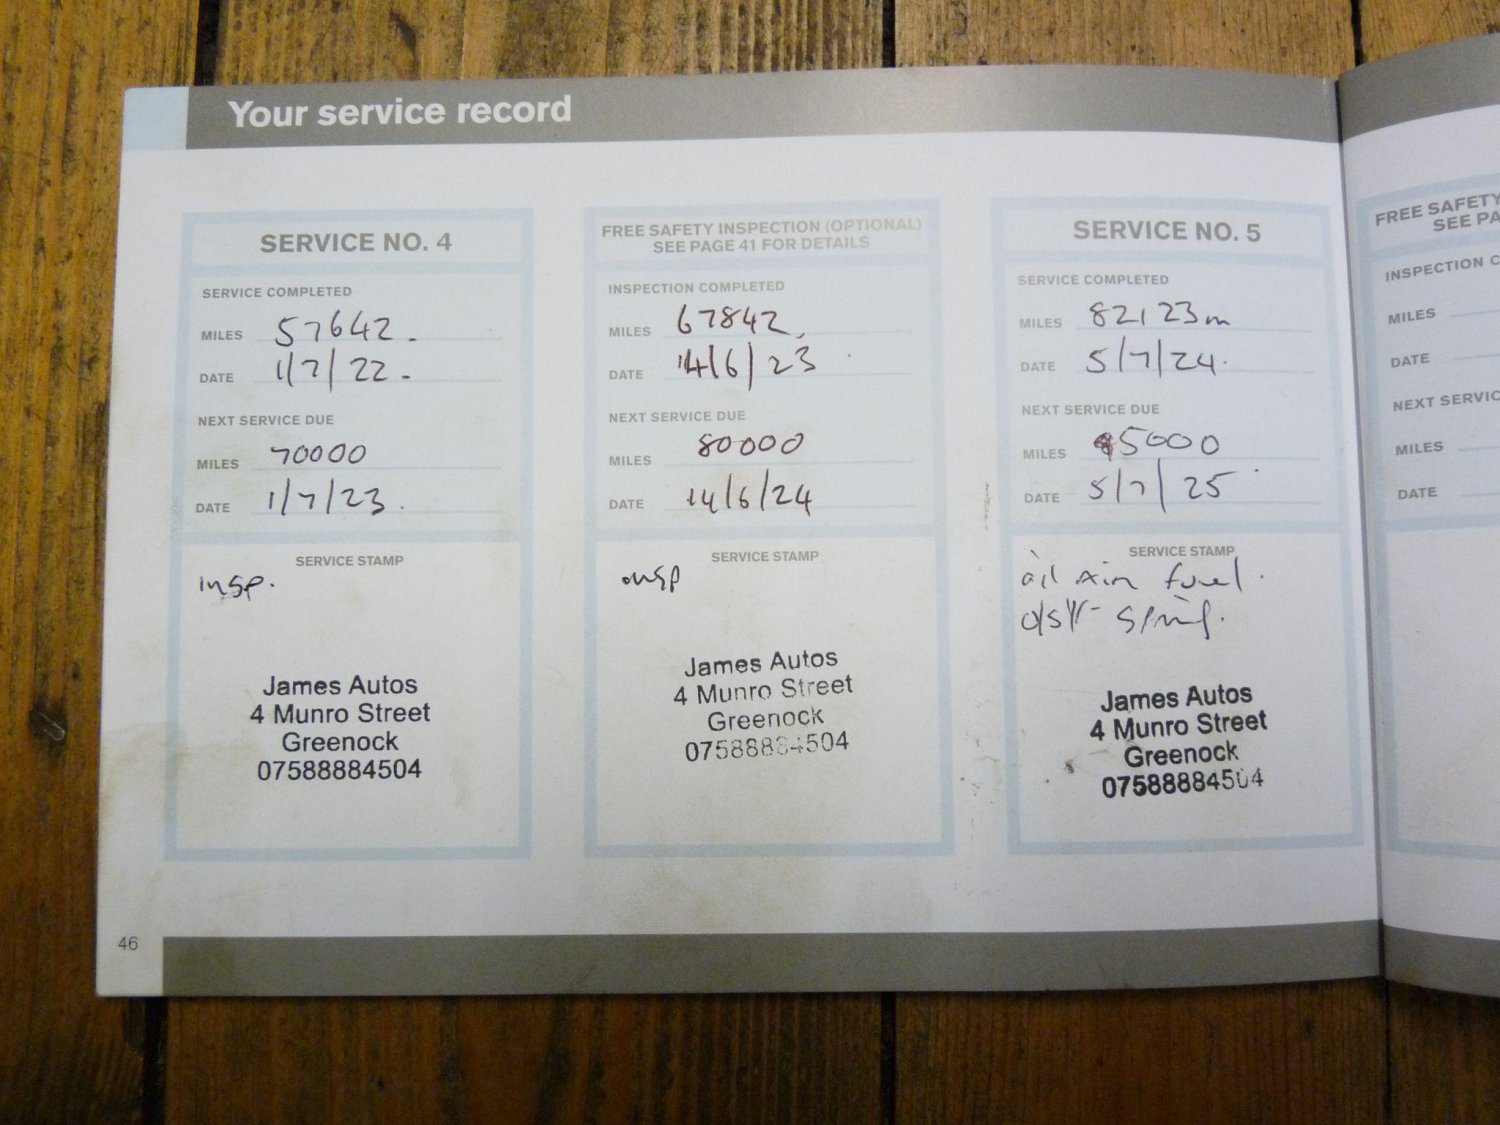 Your service record
SERVICE NO. 4
SERVICE COMPLETED
MILES 57642.
DATE 1/7/22.
NEXT SERVICE DUE
MILES 70000
DATE 1/7/23.
SERVICE STAMP
insp.
James Autos
4 Munro Street
Greenock
07588884504
FREE SAFETY INSPECTION (OPTIONAL)
SEE PAGE 41 FOR DETAILS
INSPECTION COMPLETED
MILES 67842.
DATE 14/6/23
NEXT SERVICE DUE
MILES 80000
DATE 14/6/24
SERVICE STAMP
insp
James Autos
4 Munro Street
Greenock
07588884504
SERVICE NO. 5
SERVICE COMPLETED
MILES 82123m
DATE 5/7/24.
NEXT SERVICE DUE
MILES 95000
DATE 5/7/25
SERVICE STAMP
oil air fuel.
James Autos
4 Munro Street
Greenock
07588884504
46
FREE SAFETY
SEE PA
INSPECTION C
MILES
DATE
NEXT SERVIC
MILES
DATE